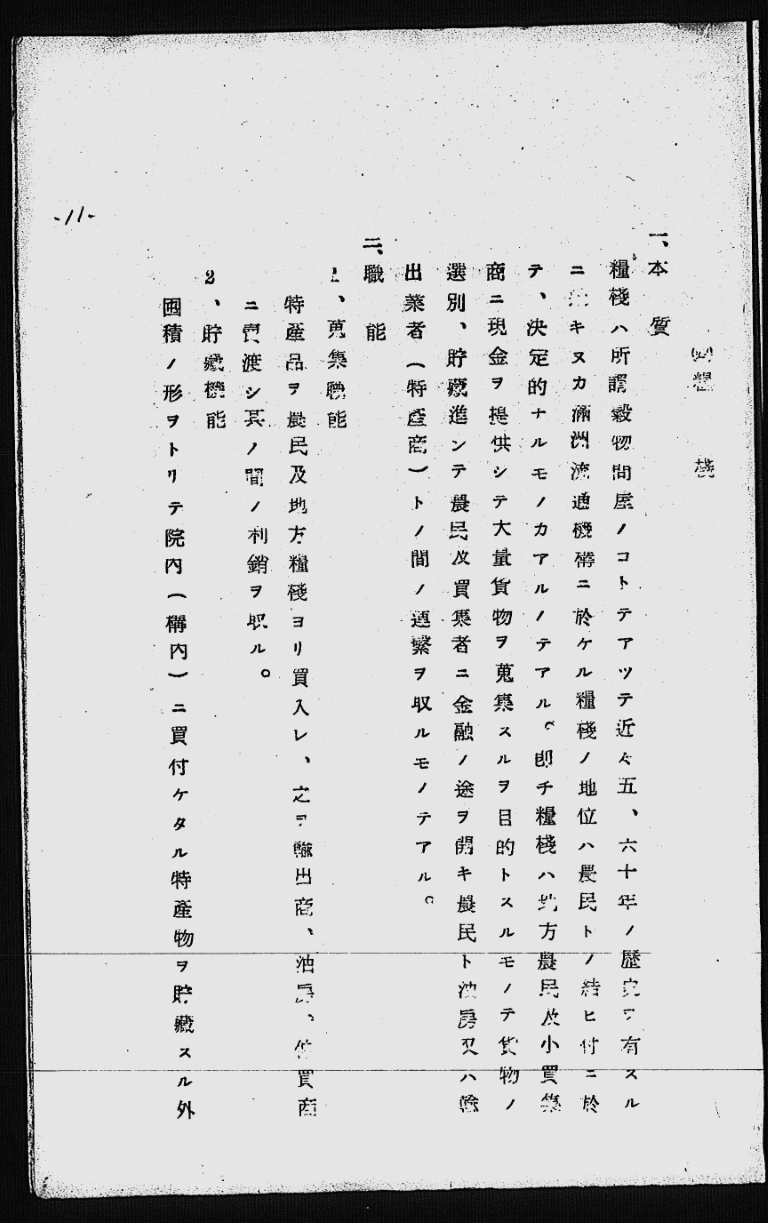 糧棧
一、本質
糧棧ハ所謂穀物問屋ノコトテアツテ近々五、六十年ノ歴史ヲ有スル
ニキヌカ滿洲流通機構ニ於ケル糧棧ノ地位ハ農民トノ結ヒ付ニ於
テ、決定的ナルモノカアルノテアル。即チ糧棧ハ地方農民及小買集
商ニ現金ヲ提供シテ大量貨物ヲ蒐集スルヲ目的トスルモノテ貨物ノ
選別、貯藏進ンテ農民及買集者ニ金融ノ途ヲ開キ農民ト油房又ハ輸
出業者(特産商)トノ間ノ連繋ヲ収ルモノテアル。
二、職能
1、蒐集職能
特産品ヲ農民及地方糧棧ヨリ買入レ、之ヲ輸出商、油房、仲買商
ニ賣渡シ其ノ間ノ利銷ヲ収ル。
2、貯藏機能
囤積ノ形ヲトリテ院內(構內)ニ買付ケタル特產物ヲ貯藏スル外
-11-